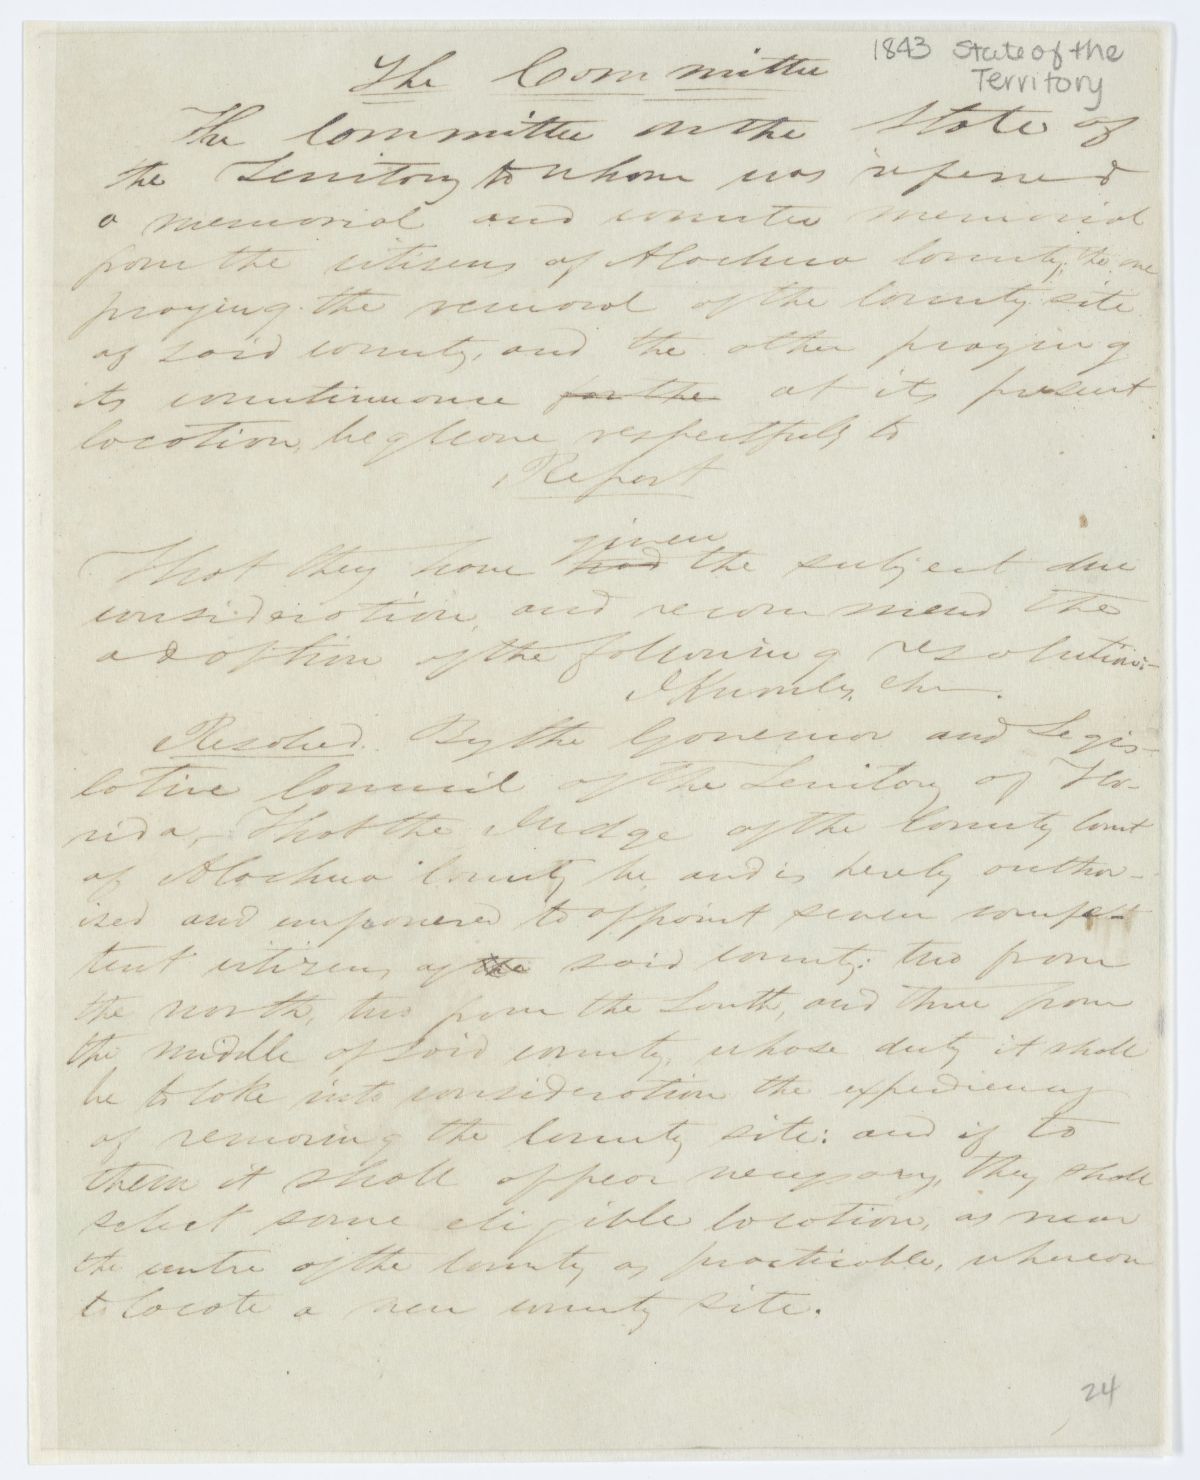 1843 State of the
Territory
The Committee
The Committee on the State of
the Territory to whom was refered
a memorial and counter memorial
from the citizens of Alachua County; the one
praying the removal of the County site
of said county, and the other praying
its countinuance for the at its present
location, beg leave respectfully to
Report
That they have had given the subject due
consideration, and recommend the
adoption of the following resolution:-
Resolved. By the Governor and Legis-
lative Council of the Territory of Flo-
rida, - That the Judge of the County Court
of Alachua County be, and is hereby author-
ised and empowered to appoint seven compe-
tent citizens of the said county: two from
the north, two from the South, and three from
the middle of said county, whose duty it shall
be to take into consideration the expediency
of removing the County site: and if to
them it shall appear necessary, they shall
select some eligible location, as near
the centre of the County as practicable, whereon
to locate a new county site.
24